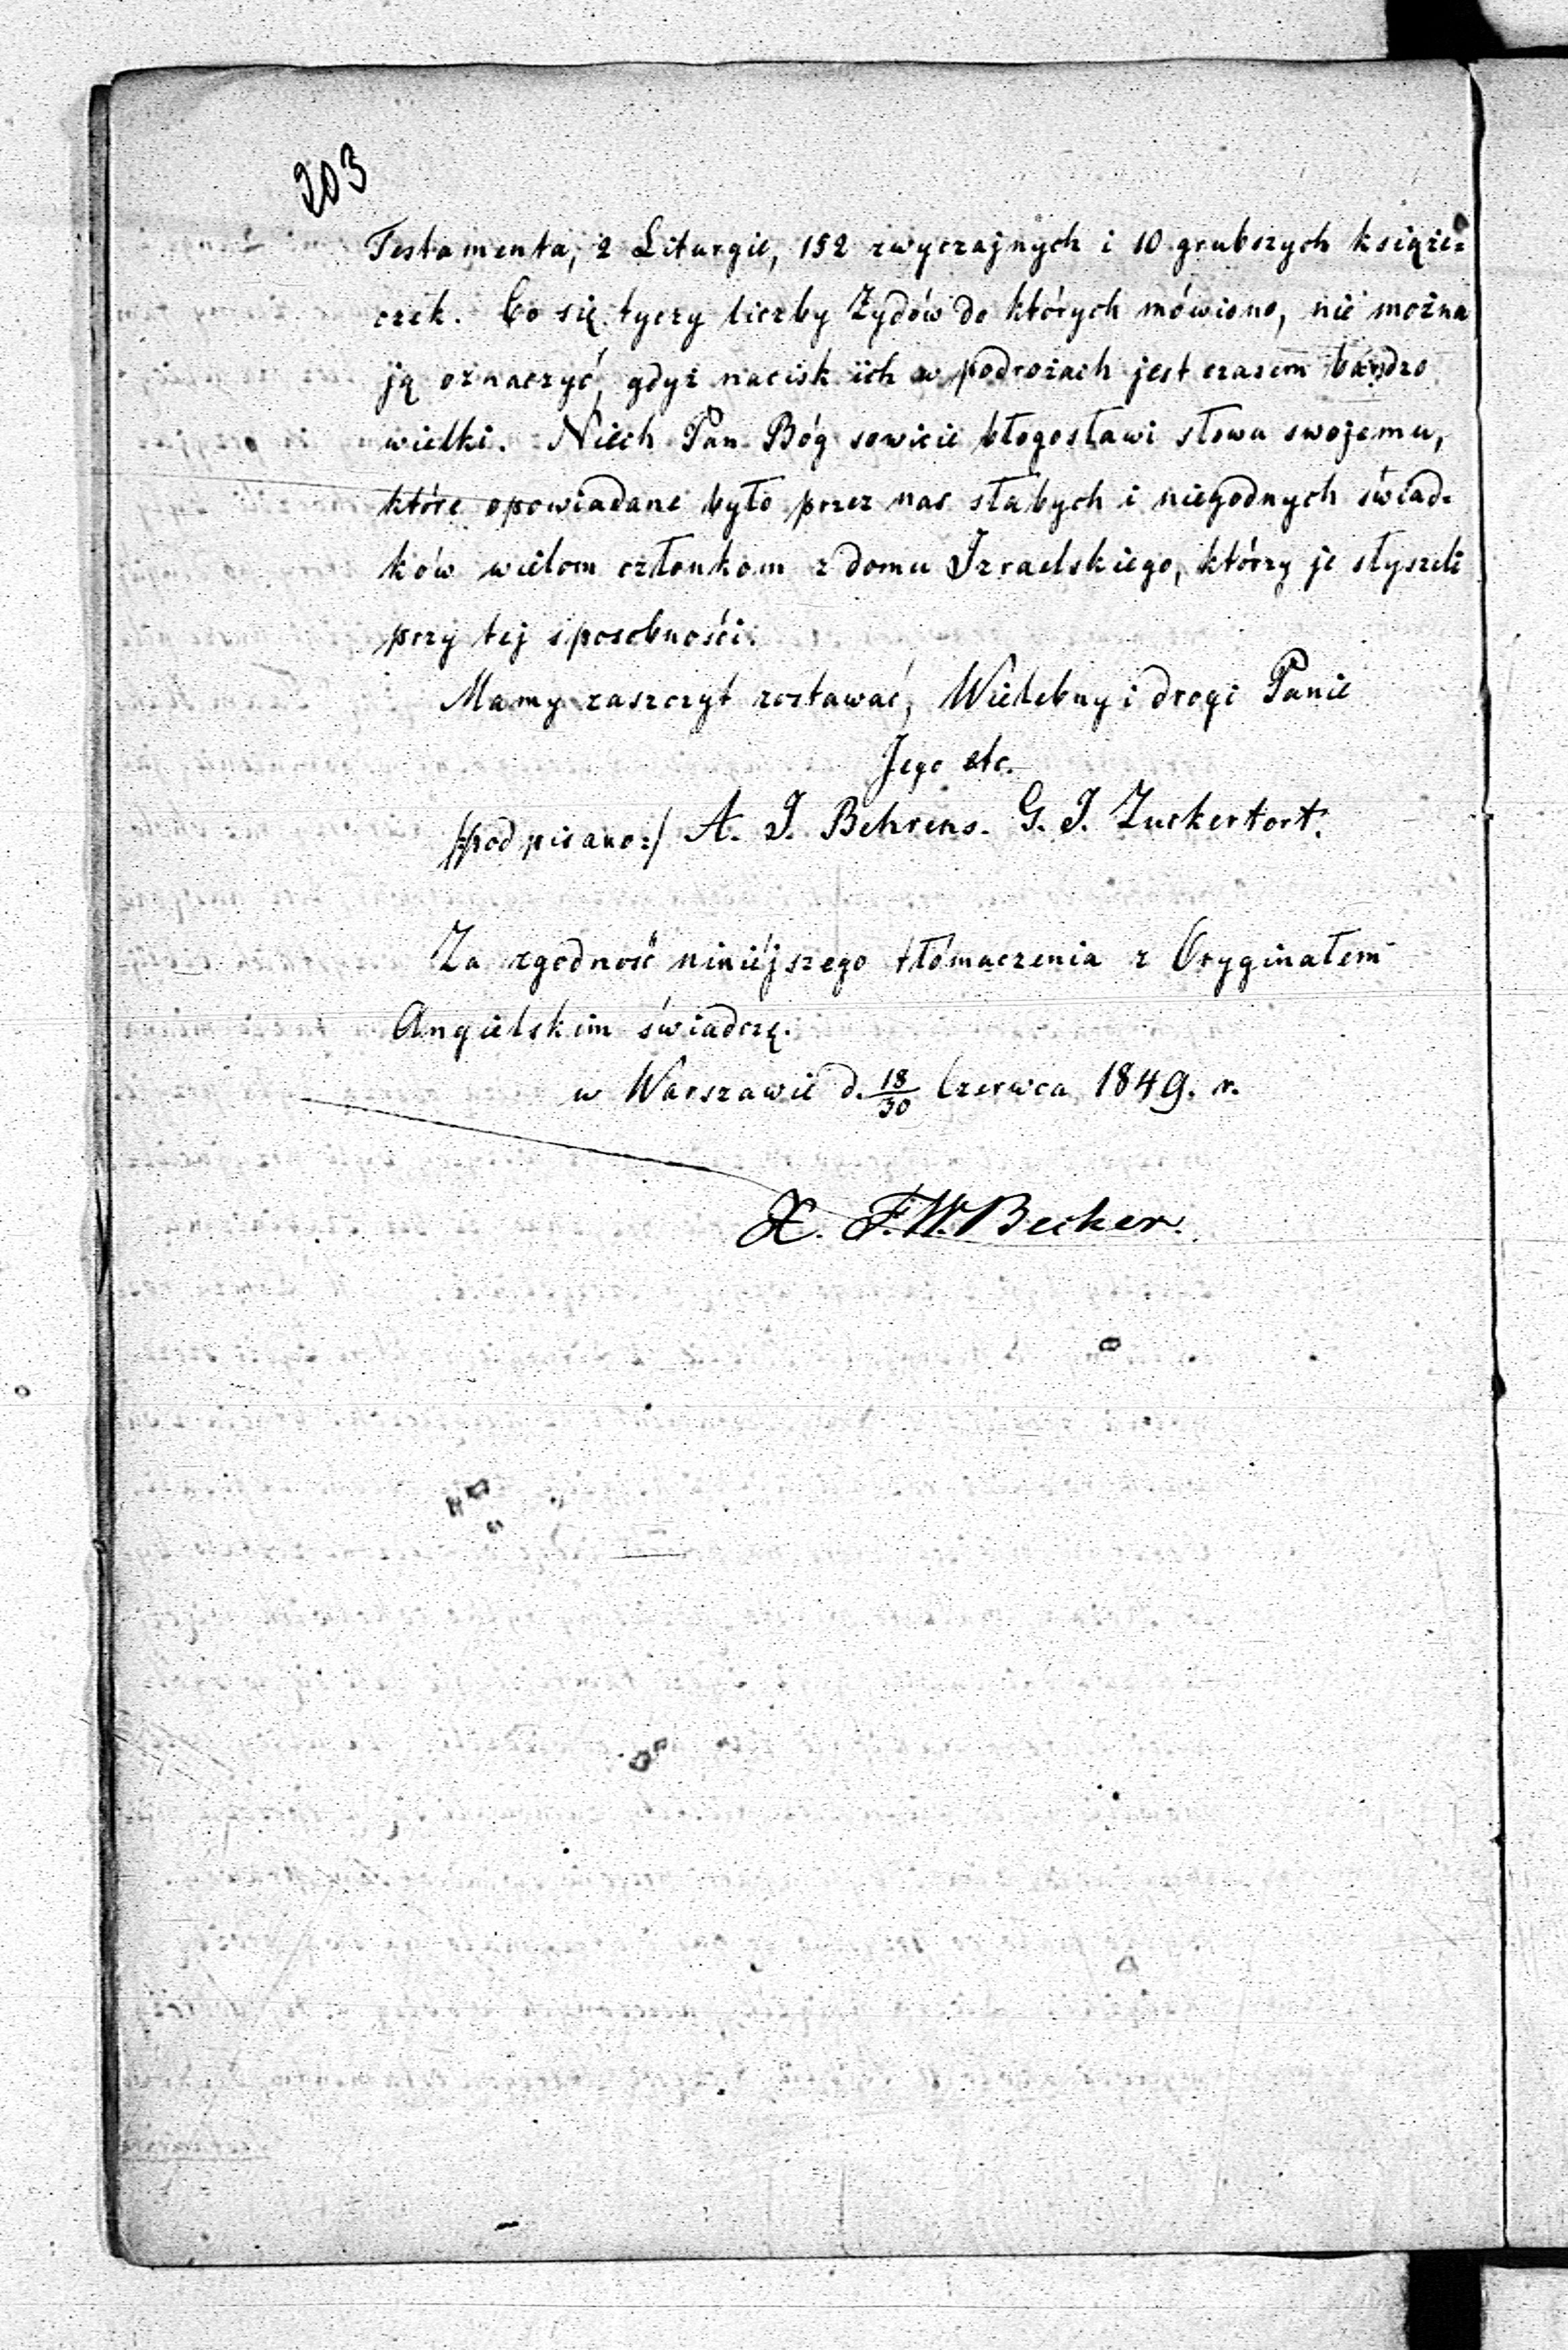 203
Testamenta, 2 Liturgie, 152 zwyczajnych i 10 grubszych książe=
czek. Co się tyczy liczby Żydów do których mówiono, nie można
ją oznaczyć, gdyż nacisk ich w podrożach jest czasem bardzo
wielki. Niech Pan Bóg sowicie błogosławi słowu swojemu,
które opowiadane było przez nas słabych i niegodnych świad=
ków wielom członkom z domu Izraelskiego, którzy je słyszeli
przy tej sposobności.
Mamy zaszczyt zostawać, Wielebny i drogi Panie
Jego etc.
/:podpisano:/ A. J. Behrens. G. J. Zuckertort.
Za zgodność niniéjszego tłómaczenia z Oryginałem
Angielskim świadczę.
w Warszawie d. 18/30 Czerwca 1849. r.
X. F. W. Becker.